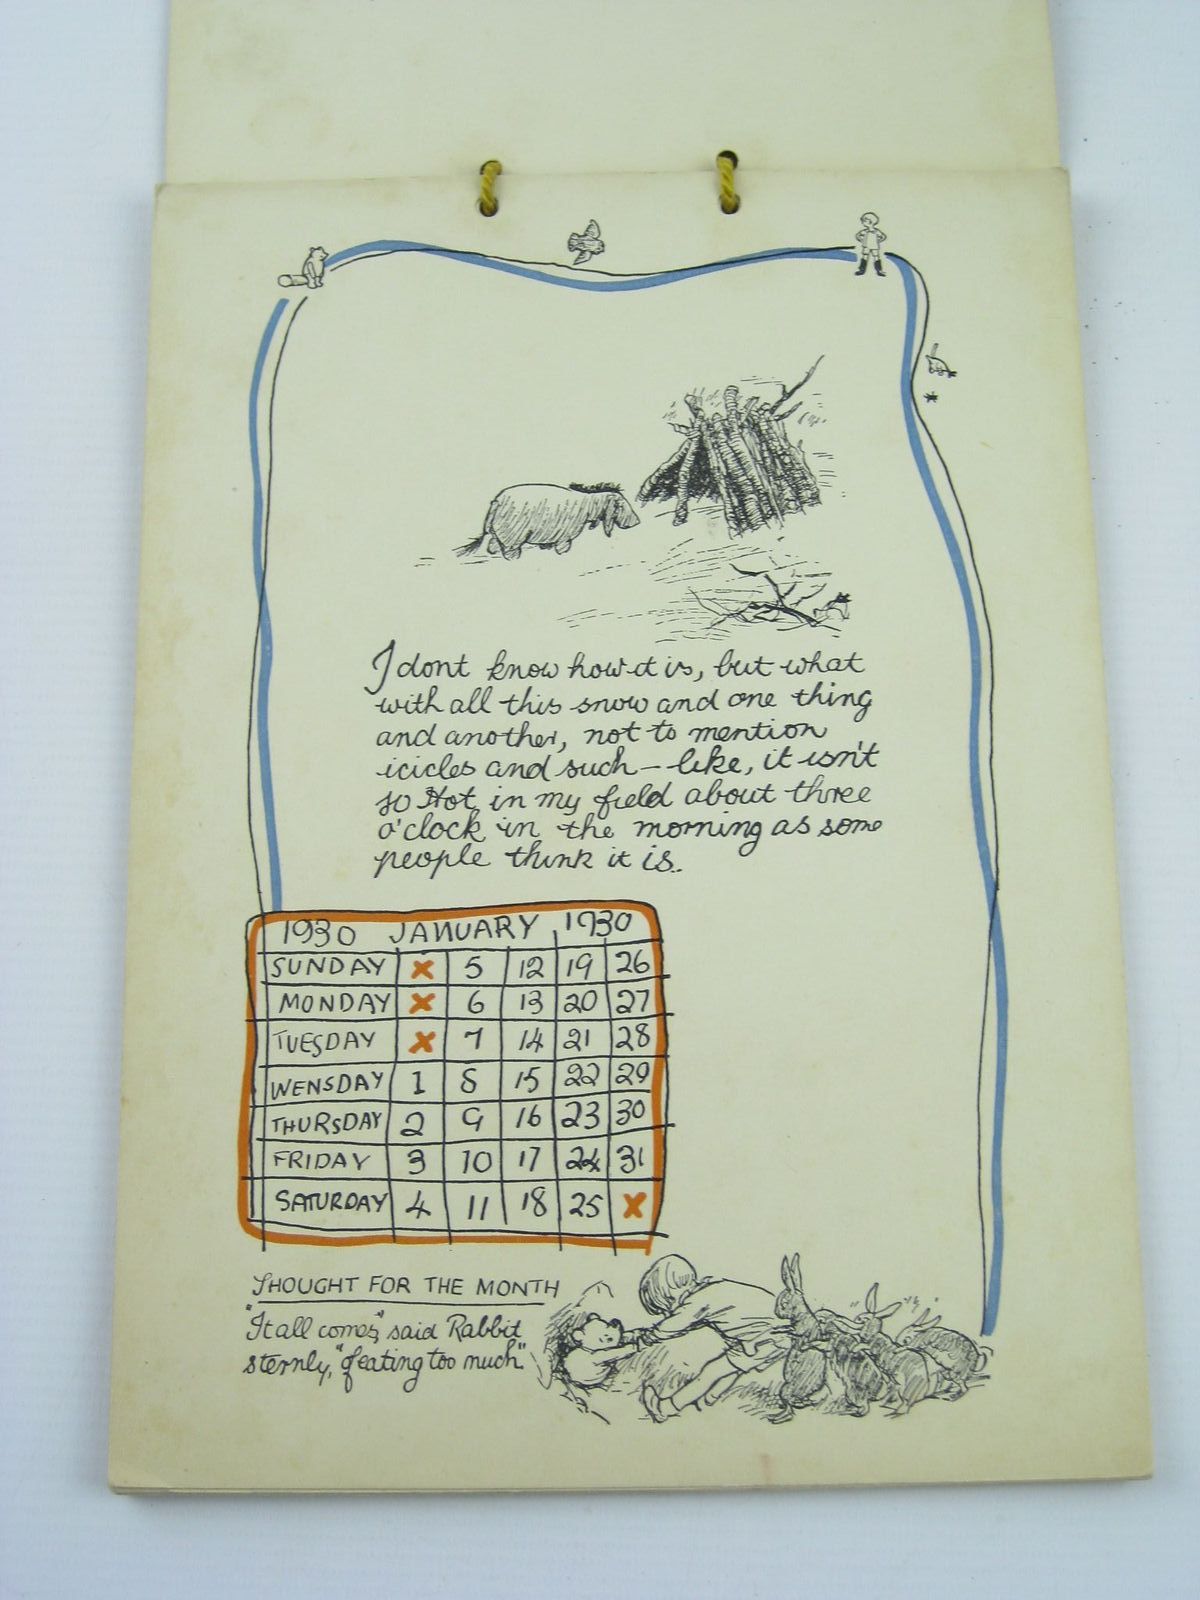 I dont know how it is, but what
with all this snow and one thing
and another, not to mention
icicles and such-like, it isn't
so Hot in my field about three
o'clock in the morning as some
people think it is.
1930 JANUARY 1930
SUNDAY X 5 12 19 26
MONDAY X 6 13 20 27
TUESDAY X 7 14 21 28
WENSDAY 1 8 15 22 29
THURSDAY 2 9 16 23 30
FRIDAY 3 10 17 24 31
SATURDAY 4 11 18 25 X
THOUGHT FOR THE MONTH
"It all comes," said Rabbit
sternly, "of eating too much"